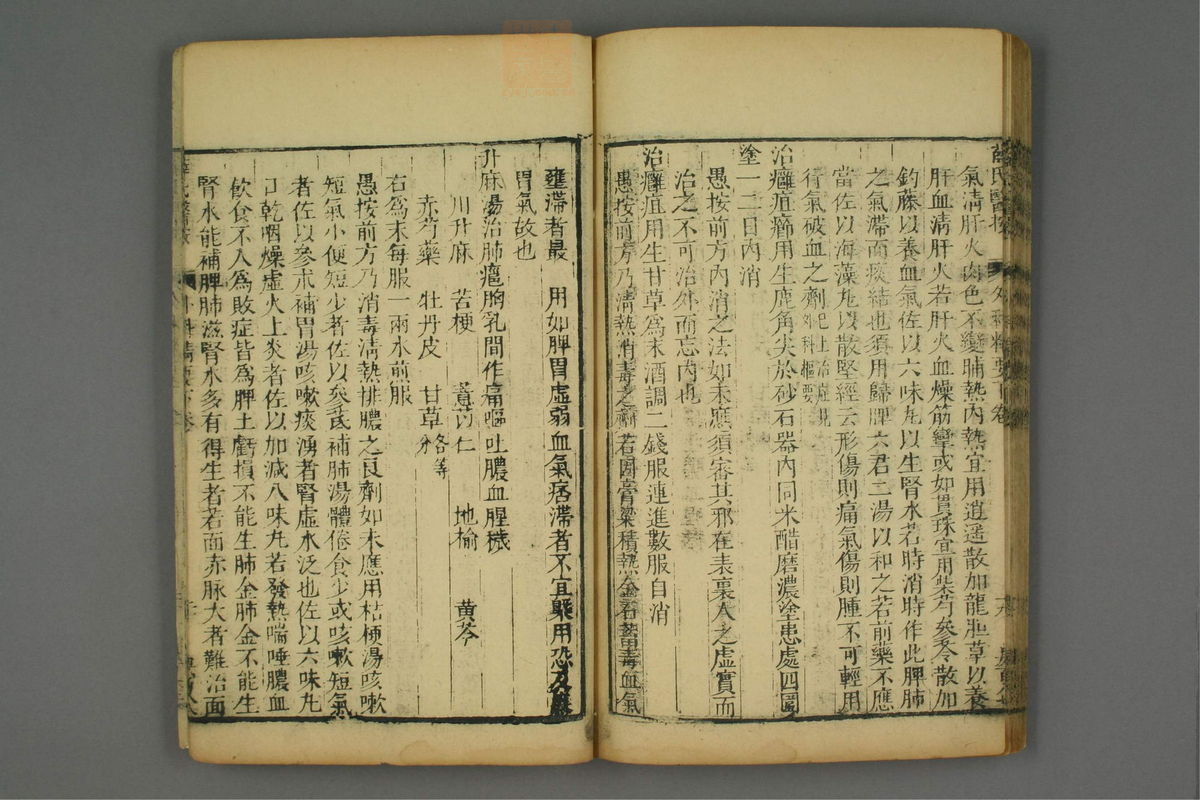 薛氏醫按 外科精要下卷
氣淸肝火肉色不變脯熱內熱宜用逍遥散加龍胆草以養
肝血淸肝火若肝火血燥筋攣或如貫珠宜用柴芍參苓散加
鈞藤以養血氣佐以六味丸以生腎水若時消時作此脾肺
之氣滯而痰結也須用歸脾六君二湯以和之若前藥不應
當佐以海藻丸以散堅經云形傷則痛氣傷則腫不可輕用
行氣破血之劑已上治症見外科樞要
治癰疽癤用生鹿角尖於砂石器內同米醋磨濃塗患處四圍
塗一二日內消
愚按前方內消之法如未應須審其邪在表裏人之虛實而
治之不可治外而忘內也
治癰疽用生甘草爲末酒調二錢服連進數服自消
愚按前方乃淸熱消毒之劑若因膏粱積熱金石藥毒血氣
壅滯者最 用如脾胃虛弱血氣痞滯者不宜槩用恐
胃氣故也
升麻湯治肺癰胸乳間作痛嘔吐膿血腥穢
川升麻 苦梗 薏苡仁 地榆 黃芩
赤芍藥 牡丹皮 甘草各等分
右爲末每服一兩水煎服
愚按前方乃消毒淸熱排膿之良劑如未應用桔梗湯咳嗽
短氣小便短少者佐以參芪補肺湯體倦食少或咳嗽短氣
者佐以參朮補胃湯咳嗽痰湧者腎虛水泛也佐以六味丸
口乾咽燥虛火上炎者佐以加減八味丸若發熱喘唾膿血
飮食不入爲敗症皆爲脾土虧損不能生肺金肺金不能生
腎水能補脾肺滋腎水多有得生者若面赤脉大者難治面